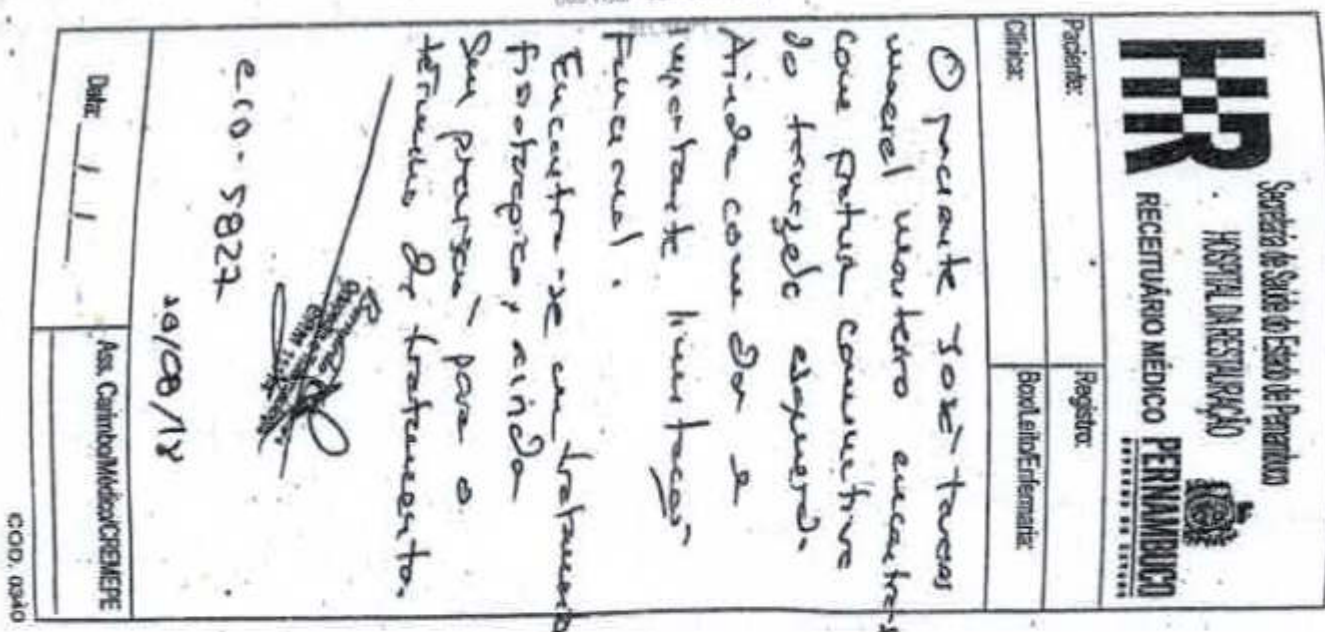 Secretaria de Saúde do Estado de Pernambuco
HOSPITAL DA RESTAURAÇÃO
HR
RECEITUÁRIO MÉDICO
PERNAMBUCO
GOVERNO DO ESTADO
Paciente:
Registro:
Clínica:
Box/Leito/Enfermaria:
O paciente José Tavares
maciel monteiro encontra-s
com fratura cominutiva
do tornozelo esquerdo.
Ainda com dor e
importante limitação
Funcional.
Encontra-se em tratamento
fisioterápico, ainda
sem previsão para o
término do tratamento.
CID - 5827
20/08/18
Data: / /
Ass. Carimbo/Médico/CREMEPE
COD. 0340